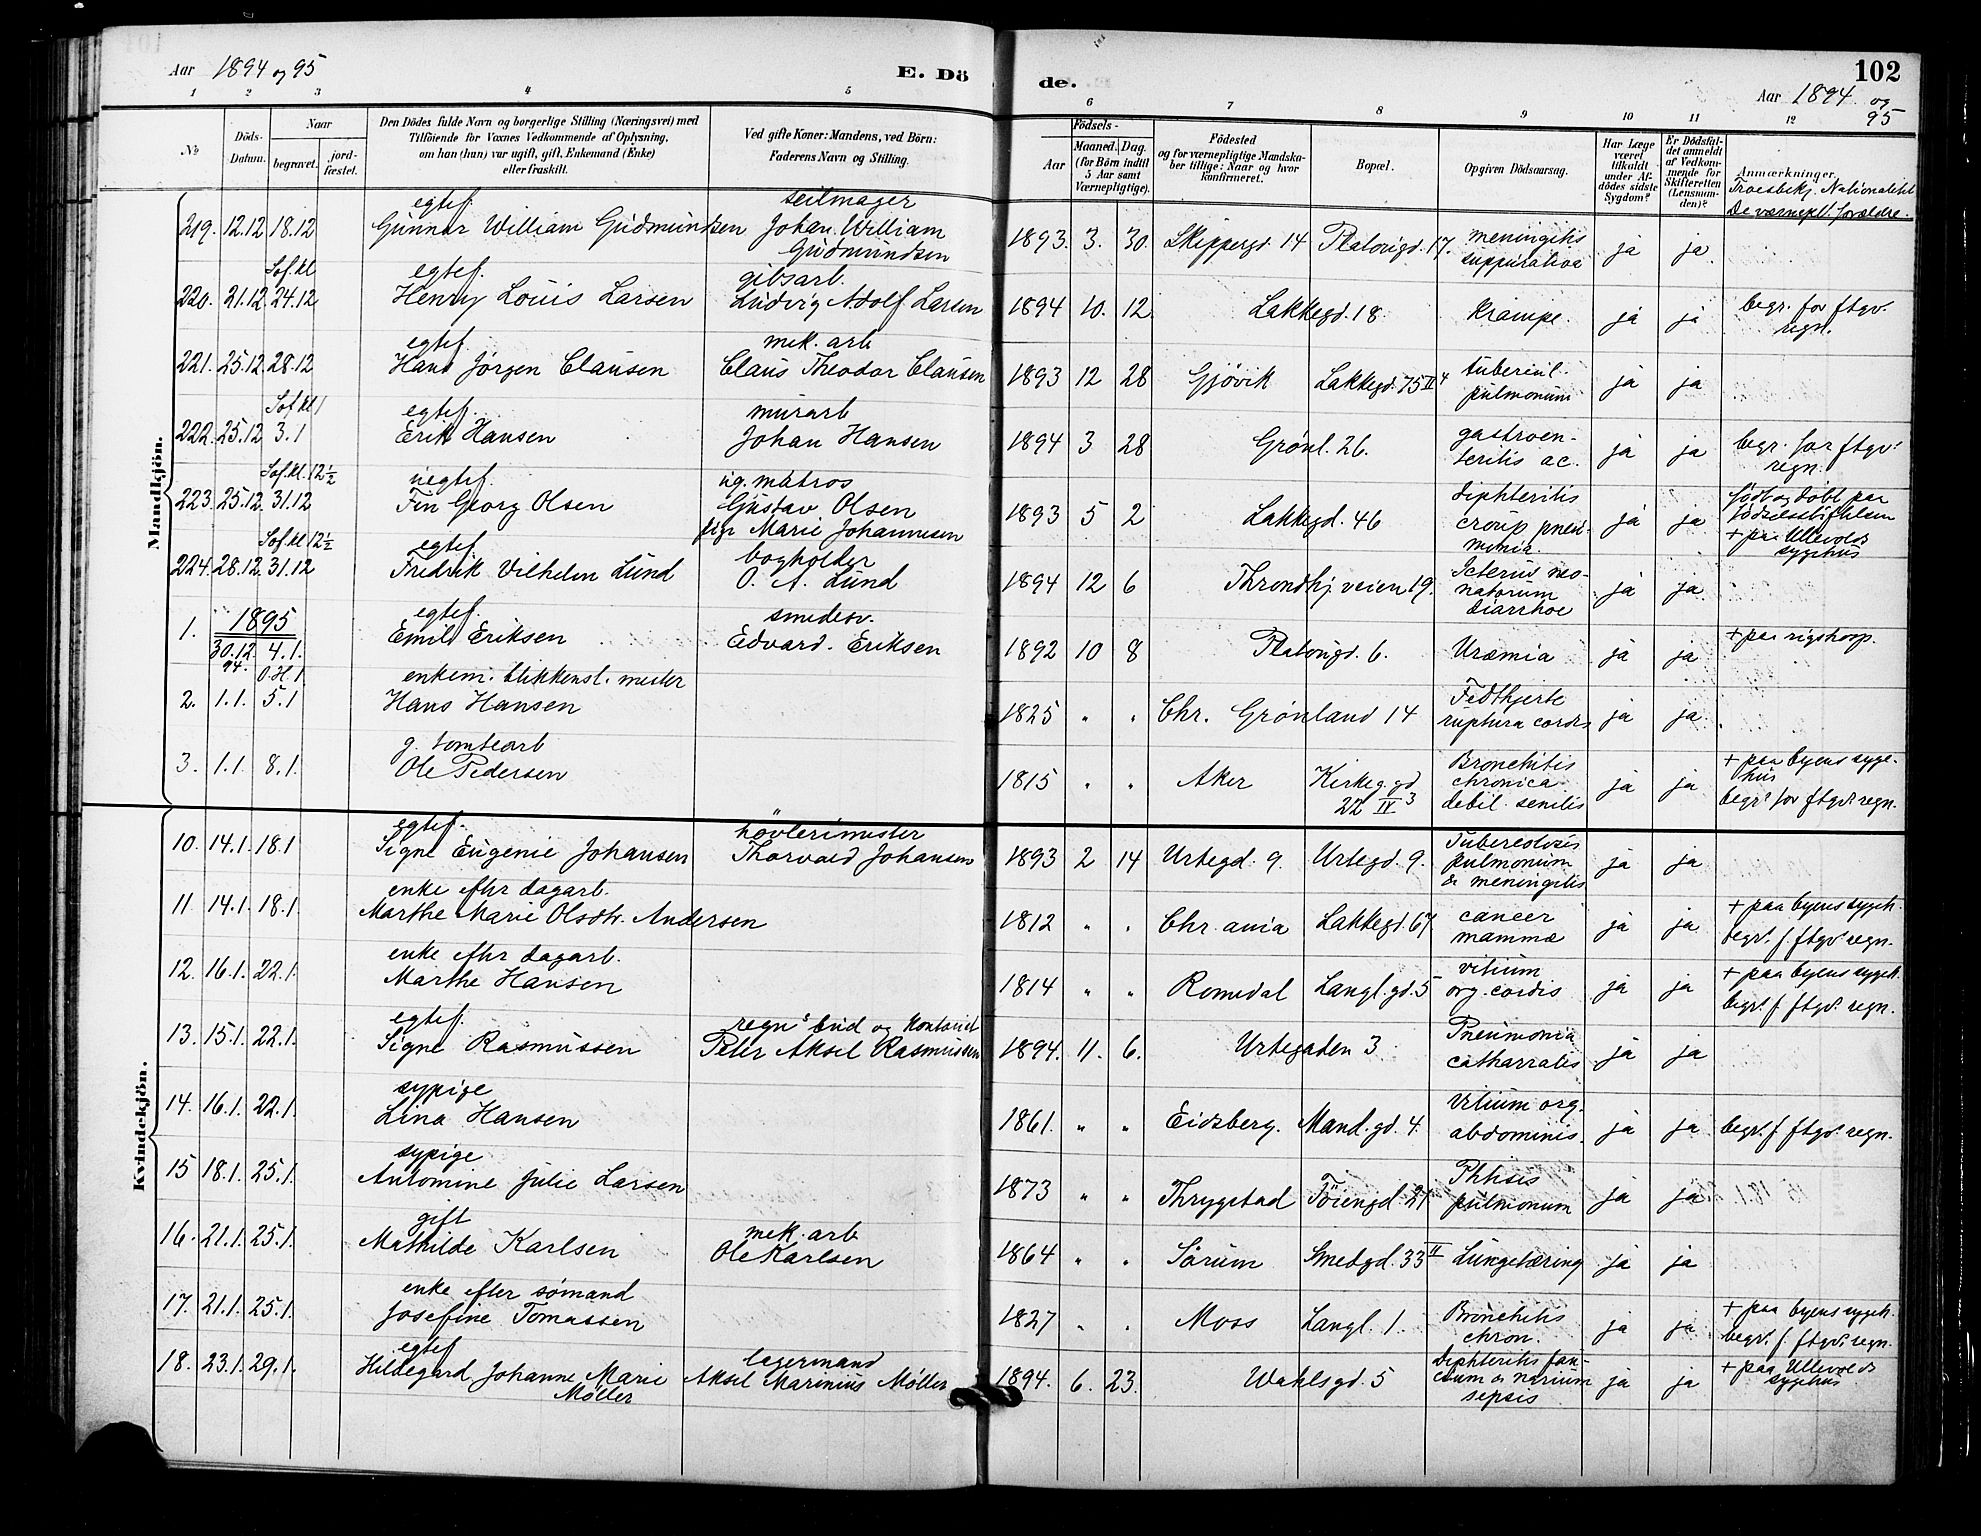 Aar 1894 og 95
E. Dö
de.
102
Aar 1894 og 95
1 2 3 4 5 6 7 8 9 10 11 12
No
Döds-Datum.
Naar
begravet.
jord-fæstet.
Den Dödes fulde Navn og borgerlige Stilling (Næringsvei) med
Tilföiende for Voxnes Vedkommende af Oplysning,
om han (hun) var ugift, gift, Enkemand (Enke)
eller fraskilt.
Ved gifte Koner: Mandens, ved Börn:
Faderens Navn og Stilling.
Födsels-
Aar
Maaned.
Dag.
(for Börn indtil
5 Aar samt
Værnepligtige).
Födested
og for værnepligtige Mandska-
ber tillige: Naar og hvor
konfirmeret.
Bopæl.
Opgiven Dödsaarsag.
Har Læge
været
tilkaldt
under Af-
dödes sidste
Sygdom?
Er Dödsfal-
det anmeldt
af Vedkom-
mende for
Skifteretten
(Lensman-
den)?
Anmærkninger.
Troesbekj. Nationalitet
De værnepl. forældre.
Mandkjön.
egtef. seilmager
219. 12.12 18.12 Gunnar William Gudmundsen Johan William
Gudmundsen
1893. 3. 30. Skippergd. 14 Platousgd. 17. meningitis
suppurativa ja ja
Sof. kl
egtef. gibsarb.
220. 21.12 24.12 Henry Louis Larsen Ludvig Adolf Larsen
1894 10. 12 Lakkegd. 18 Krampe. ja ja begr. for ftgv.
regn.
egtef. mek. arb
221. 25.12 28.12 Hans Jørgen Clausen Claus Theodor Clausen
1893 12 28 Gjøvik Lakkegd. 75 II 4 tubercul.
pulmonum ja ja
Sof. kl 1
egtef. murarb
222. 25.12 3.1 Erik Hansen Johan Hansen
1894 3 28 Grønl. 26. gastroen-
teritis ac. ja ja begr. for ftgv.
regn.
Sof. kl. 12 ½
uegtef. ug. matros
223. 25.12 31.12 Fin Georg Olsen Gustav Olsen
pige Marie Johannesen
1893 5 2 Lakkegd. 46 diphteritis
croup pneu-
monia. ja ja født og døbt paa
fødselsstiftelsen
+ paa Ullevolds
sygehus
Sof. kl 12 ½
egtef. bogholder
224. 28.12 31.12 Fredrik Vilhelm Lund O. A. Lund
1894 12 6 Throndhj. veien 19. Icterus neo-
natorum
diarrhoe ja ja
1895
egtef. smedesv.
1. 30.12 94. 4.1. Emil Eriksen Edvard. Eriksen
1892 10 8 Platousgd. 6. Uræmia ja ja + paa rigshosp.
O. H. 1
enkem. blikkensl. mester
2. 1.1. 5.1 Hans Hansen
1825 " " Chr. Grønland 14 Fedthjerte
ruptura cordis ja ja
g. tomtearb
3. 1.1. 8.1. Ole Pedersen
1815 " " Aker Kirkeg. gd
22 IV 3 Bronchitis
chronica.
debil. senilis ja ja + paa byens syge-
hus
begr. for ftgv. regn.
Kvindekjön.
egtef. høvlerimester
10. 14.1. 18.1 Signe Eugenie Johansen Thorvald Johansen
1893 2 14 Urtegd. 9. Urtegd. 9. Tuberculosis
pulmonum
& meningitis ja ja
enke efter dagarb.
11 14.1. 18.1. Marthe Marie Olsdtr. Andersen
1812 " " Chr. ania Lakkegd. 67 cancer
mammæ ja ja + paa byens sygeh.
begr. f. ftgv. regn.
enke efter dagarb.
12. 16.1. 22.1. Marthe Hansen
1814 " " Romedal Langl. gd. 5 vitium
org. cordis ja ja + paa byens sygeh.
begr. f. ftgv. regn.
egtef. regn.s bud og kontorist
13. 15.1. 22.1. Signe Rasmussen Peter Aksel Rasmussen
1894. 11. 6. Urtegaden 3 Pneumonia
catharralis ja ja
sypige
14. 16.1. 22.1. Lina Hansen
1861. " " Eidsberg. Mand. gd. 4. Vitium org.
abdominis. ja ja begr. f. ftgv. regn.
sypige
15 18.1. 25.1. Antomine Julie Larsen
1873 " " Thrygstad Töiengd. 21 Phtisis
pulmonum ja ja
gift mek. arb
16. 21.1. 25.1. Mathilde Karlsen Ole Karlsen
1864 " " Sørum Smedgd. 33 II Lungetæring ja ja
enke efter sømand
17. 21.1. 25.1. Josefine Tomassen
1827 " " Moss Langl. 1. Bronchitis
chron. ja ja + paa byens sygeh.
begr. f. ftgv. regn.
egtef lagermand
18. 23.1. 29.1. Hildegard Johanne Marie Aksel Marinius Møller
Møller
1894. 6. 23. Wahlsgd. 5 Diphteritis fau-
cium & narium
sepsis ja ja + paa Ullevolds
sygehus